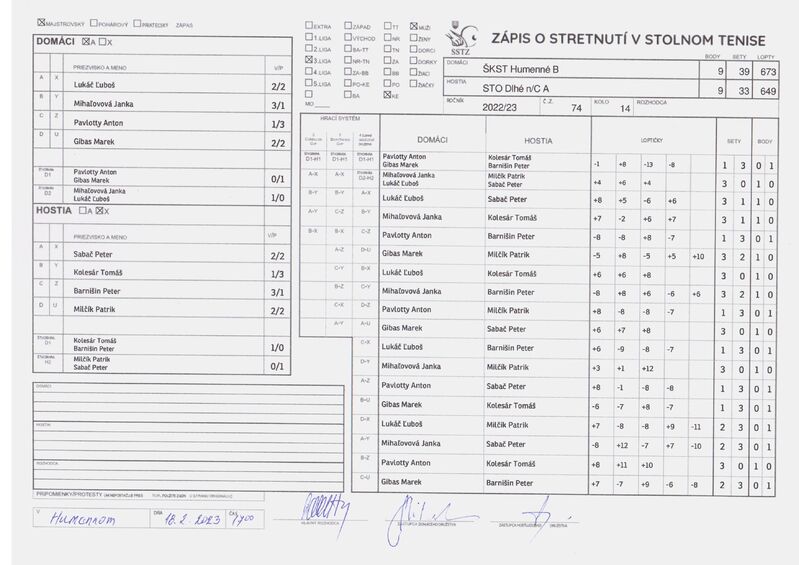 MAJSTROVSKÝ POHÁROVÝ PRIATEĽSKÝ ZÁPAS
DOMÁCI A X
PRIEZVISKO A MENO V/P
A X Lukáč Ľuboš 2/2
B Y Mihaľovová Janka 3/1
C Z Pavlotty Anton 1/3
D U Gibas Marek 2/2
ŠTVORHRA D1 Pavlotty Anton Gibas Marek 0/1
ŠTVORHRA D2 Mihaľovová Janka Lukáč Ľuboš 1/0
HOSTIA A X
PRIEZVISKO A MENO V/P
A X Sabač Peter 2/2
B Y Kolesár Tomáš 1/3
C Z Barnišin Peter 3/1
D U Milčík Patrik 2/2
ŠTVORHRA D1 Kolesár Tomáš Barnišin Peter 1/0
ŠTVORHRA H2 Milčík Patrik Sabač Peter 0/1
DOMÁCI
HOSTIA
ROZHODCA
PRIPOMIENKY/PROTESTY
V Humennom DŇA 18.2.2023 ČAS 1700
EXTRA ZÁPAD TT MUŽI
1.LIGA VÝCHOD NR ŽENY
2.LIGA BA-TT TN DORCI
3.LIGA NR-TN ZA DORKY
4.LIGA ZA-BB BB ŽIACI
5.LIGA PO-KE PO ŽIAČKY
BA KE
MO
SSTZ
ZÁPIS O STRETNUTÍ V STOLNOM TENISE
BODY SETY LOPTY
DOMÁCI ŠKST Humenné B 9 39 673
HOSTIA STO Dlhé n/C A 9 33 649
ROČNÍK 2022/23 Č.Z. 74 KOLO 14 ROZHODCA
HRACÍ SYSTÉM DOMÁCI HOSTIA LOPTIČKY SETY BODY
D1-H1 D1-H1 D1-H1 Pavlotty Anton Gibas Marek Kolesár Tomáš Barnišin Peter -1 +8 -13 -8 1 3 0 1
A-X A-X D2-H2 Mihaľovová Janka Lukáč Ľuboš Milčík Patrik Sabač Peter +4 +6 +4 3 0 1 0
B-Y B-Y A-X Lukáč Ľuboš Sabač Peter +8 +5 -6 +6 3 1 1 0
A-Y C-Z B-Y Mihaľovová Janka Kolesár Tomáš +7 -2 +6 +7 3 1 1 0
B-X B-X C-Z Pavlotty Anton Barnišin Peter -8 -8 +8 -7 1 3 0 1
A-Z D-U Gibas Marek Milčík Patrik -5 +8 -5 +5 +10 3 2 1 0
C-Y B-X Lukáč Ľuboš Kolesár Tomáš +6 +6 +8 3 0 1 0
B-Z C-Y Mihaľovová Janka Barnišin Peter -8 +8 +6 -6 +6 3 2 1 0
C-X D-Z Pavlotty Anton Milčík Patrik +8 -8 -8 -7 1 3 0 1
A-Y A-U Gibas Marek Sabač Peter +6 +7 +8 3 0 1 0
C-X Lukáč Ľuboš Barnišin Peter +6 -9 -8 -7 1 3 0 1
D-Y Mihaľovová Janka Milčík Patrik +3 +1 +12 3 0 1 0
A-Z Pavlotty Anton Sabač Peter +8 -1 -8 -8 1 3 0 1
B-U Gibas Marek Kolesár Tomáš -6 -7 +8 -7 1 3 0 1
D-X Lukáč Ľuboš Milčík Patrik +7 -8 -8 +9 -11 2 3 0 1
A-Y Mihaľovová Janka Sabač Peter -8 +12 -7 +7 -10 2 3 0 1
B-Z Pavlotty Anton Kolesár Tomáš +8 +11 +10 3 0 1 0
C-U Gibas Marek Barnišin Peter +7 -7 +9 -6 -8 2 3 0 1
HLAVNÝ ROZHODCA ZÁSTUPCA DOMÁCEHO DRUŽSTVA ZÁSTUPCA HOSŤUJÚCEHO DRUŽSTVA